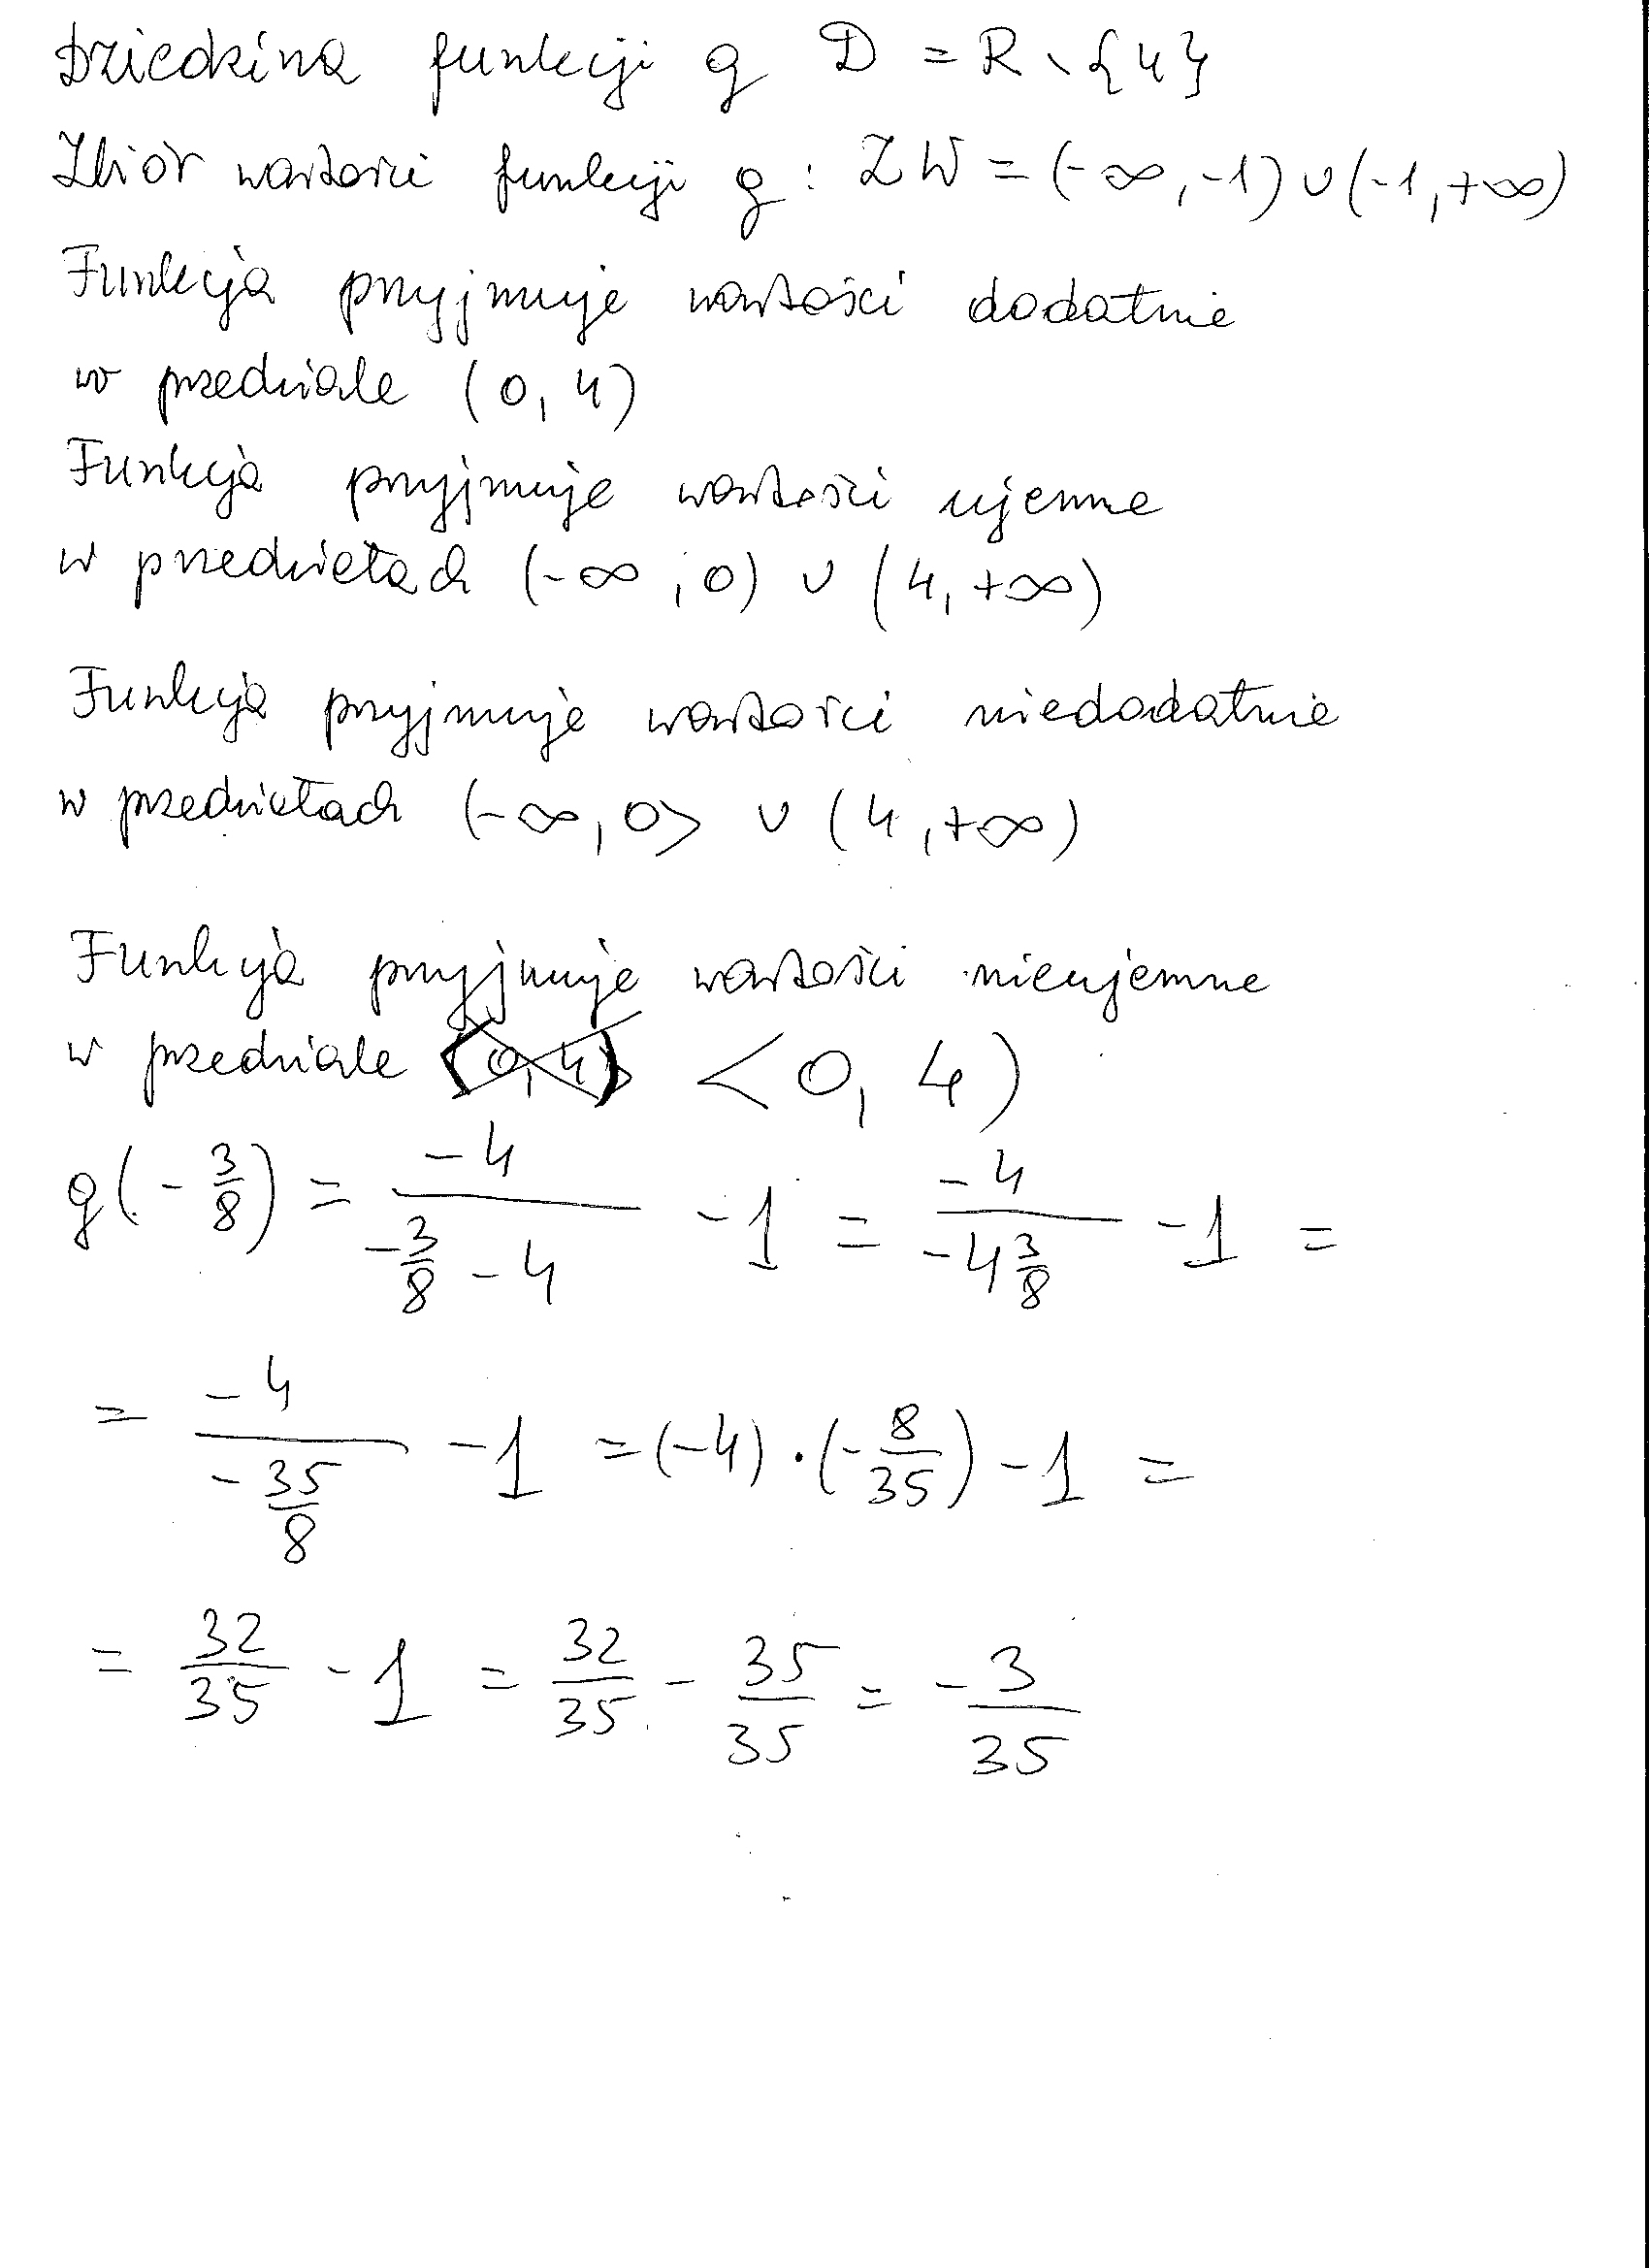 Dziedzina funkcji g D = R \ {4}
Zbiór wartości funkcji g : ZW = (-∞, -1) ∪ (-1, +∞)
Funkcja przyjmuje wartości dodatnie
w przedziale (0, 4)
Funkcja przyjmuje wartości ujemne
w przedziałach (-∞, 0) ∪ (4, +∞)
Funkcja przyjmuje wartości niedodatnie
w przedziałach (-∞, 0> ∪ (4, +∞)
Funkcja przyjmuje wartości nieujemne
w przedziale (0, 4) <0, 4)
g(-3/8) = -4/(-3/8 - 4) - 1 = -4/(-4 3/8) - 1 =
= -4/(-35/8) - 1 = (-4) · (-8/35) - 1 =
= 32/35 - 1 = 32/35 - 35/35 = -3/35